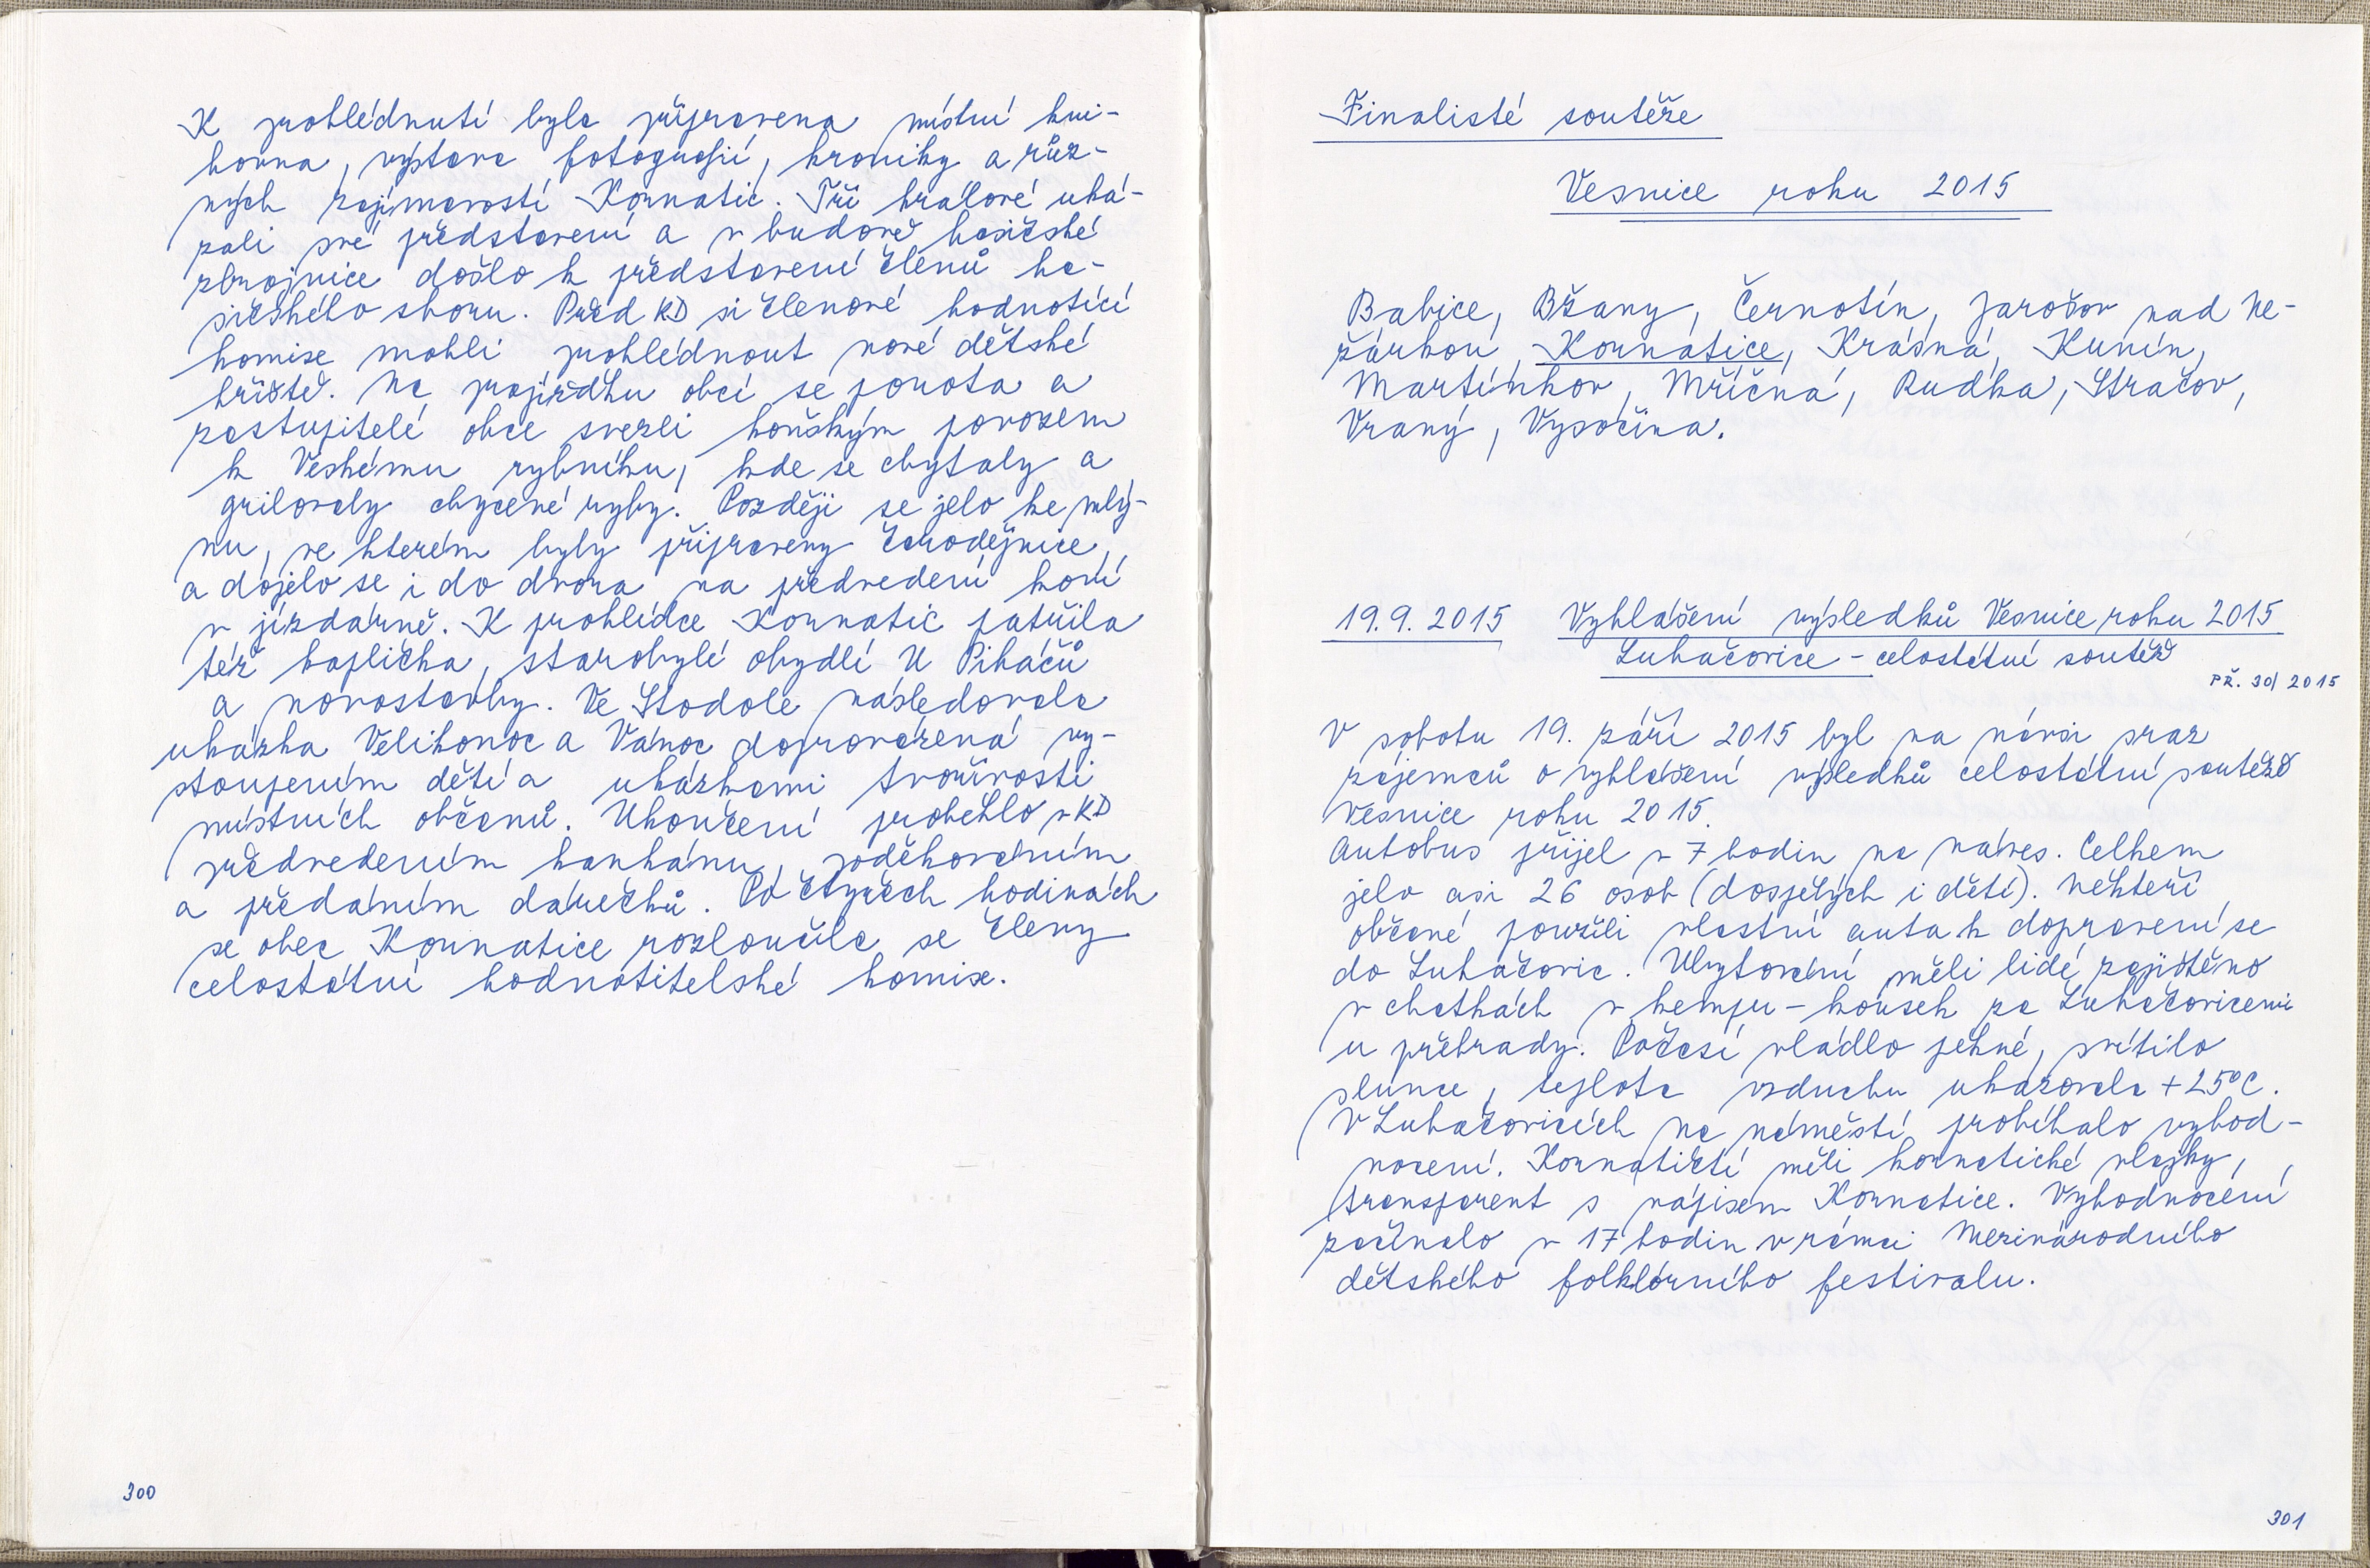 K prohlédnutí byla připravena místní kni-
hovna, výstava fotografií, kroniky a růz-
ných zajímavostí Kornatic. Tři králové uká-
zali své představení a v budově hasičské
zbrojnice došlo k představení členů ha-
sičského sboru. Před KD si členové hodnotící
komise mohli prohlédnout nové dětské
hřiště. Na projížďku obcí se porota a
zastupitelé obce svezli koňským povozem
k Veskému rybníku, kde se chytaly a
grilovaly chycené ryby. Později se jelo ke mlý-
nu, ve kterém byly připraveny čarodějnice,
a dojelo se i do dvora na předvedení koní
v jízdárně. K prohlídce Kornatic patřila
též kaplička, starobylé obydlí U Pikáčů
a novostavby. Ve Stodole následovala
ukázka Velikonoc a Vánoc doprovázená vy-
stoupením dětí a ukázkami tvořivosti
místních občanů. Ukončení proběhlo v KD
předvedením kankánu, poděkováním
a předáním dárečků. Po čtyřech hodinách
se obec Kornatice rozloučila se členy
celostátní hodnotitelské komise.
300
Finalisté soutěže
Vesnice roku 2015
Babice, Bžany, Černotín, Jarošov nad Ne-
žárkou, Kornatice, Krásná, Kunín,
Martínkov, Mříčná, Rudka, Stračov,
Vraný, Vysočina.
19. 9. 2015 Vyhlášení výsledků Vesnice roku 2015
Luhačovice - celostátní soutěž
PŘ. 30/2015
V sobotu 19. září 2015 byl na návsi sraz
zájemců o vyhlášení výsledků celostátní soutěže
Vesnice roku 2015.
Autobus přijel v 7 hodin na náves. Celkem
jelo asi 26 osob (dospělých i dětí). Někteří
občané použili vlastní auta k dopravení se
do Luhačovic. Ubytování měli lidé zajištěno
v chatkách v kempu - kousek za Luhačovicemi
u přehrady. Počasí vládlo pěkné, svítilo
slunce, teplota vzduchu ukazovala +25°C.
V Luhačovicích na náměstí probíhalo vyhod-
nocení. Kornatičtí měli kornatické vlajky,
transparent s nápisem Kornatice. Vyhodnocení
začínalo v 17 hodin v rámci Mezinárodního
dětského folklórního festivalu.
301